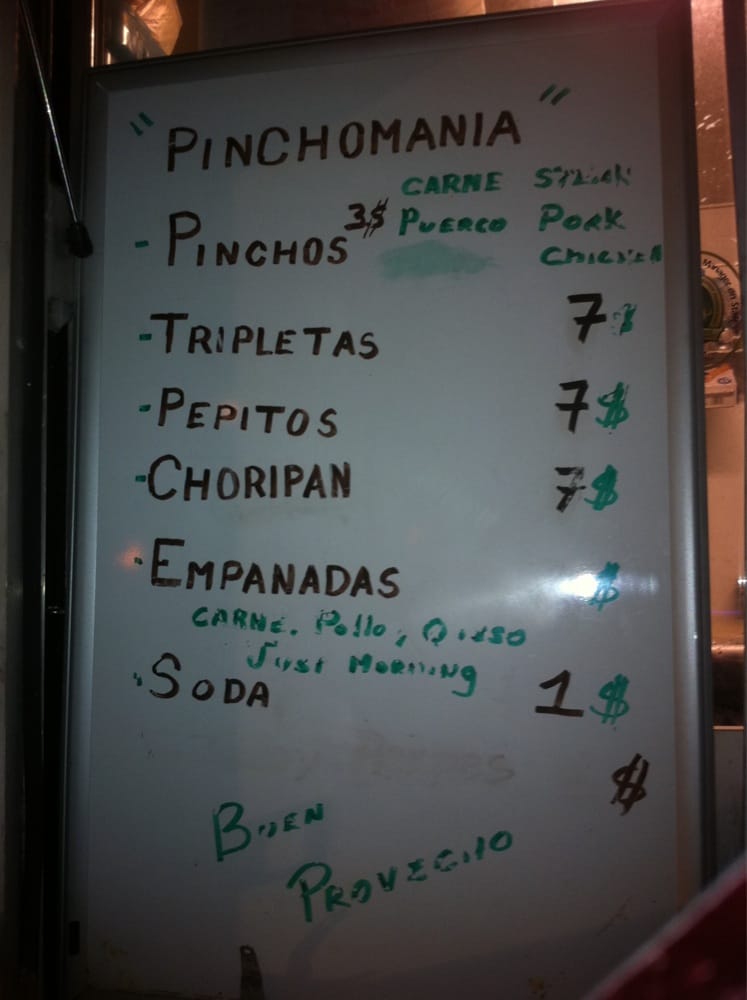 " PINCHOMANIA "
CARNE STEAK
- PINCHOS 3$ PUERCO PORK
CHICKEN
- TRIPLETAS 7$
- PEPITOS 7$
- CHORIPAN 7$
- EMPANADAS $
CARNE. Pollo, Queso
Just Morning
- SODA 1$
$
BUEN
PROVECHO
Manager on